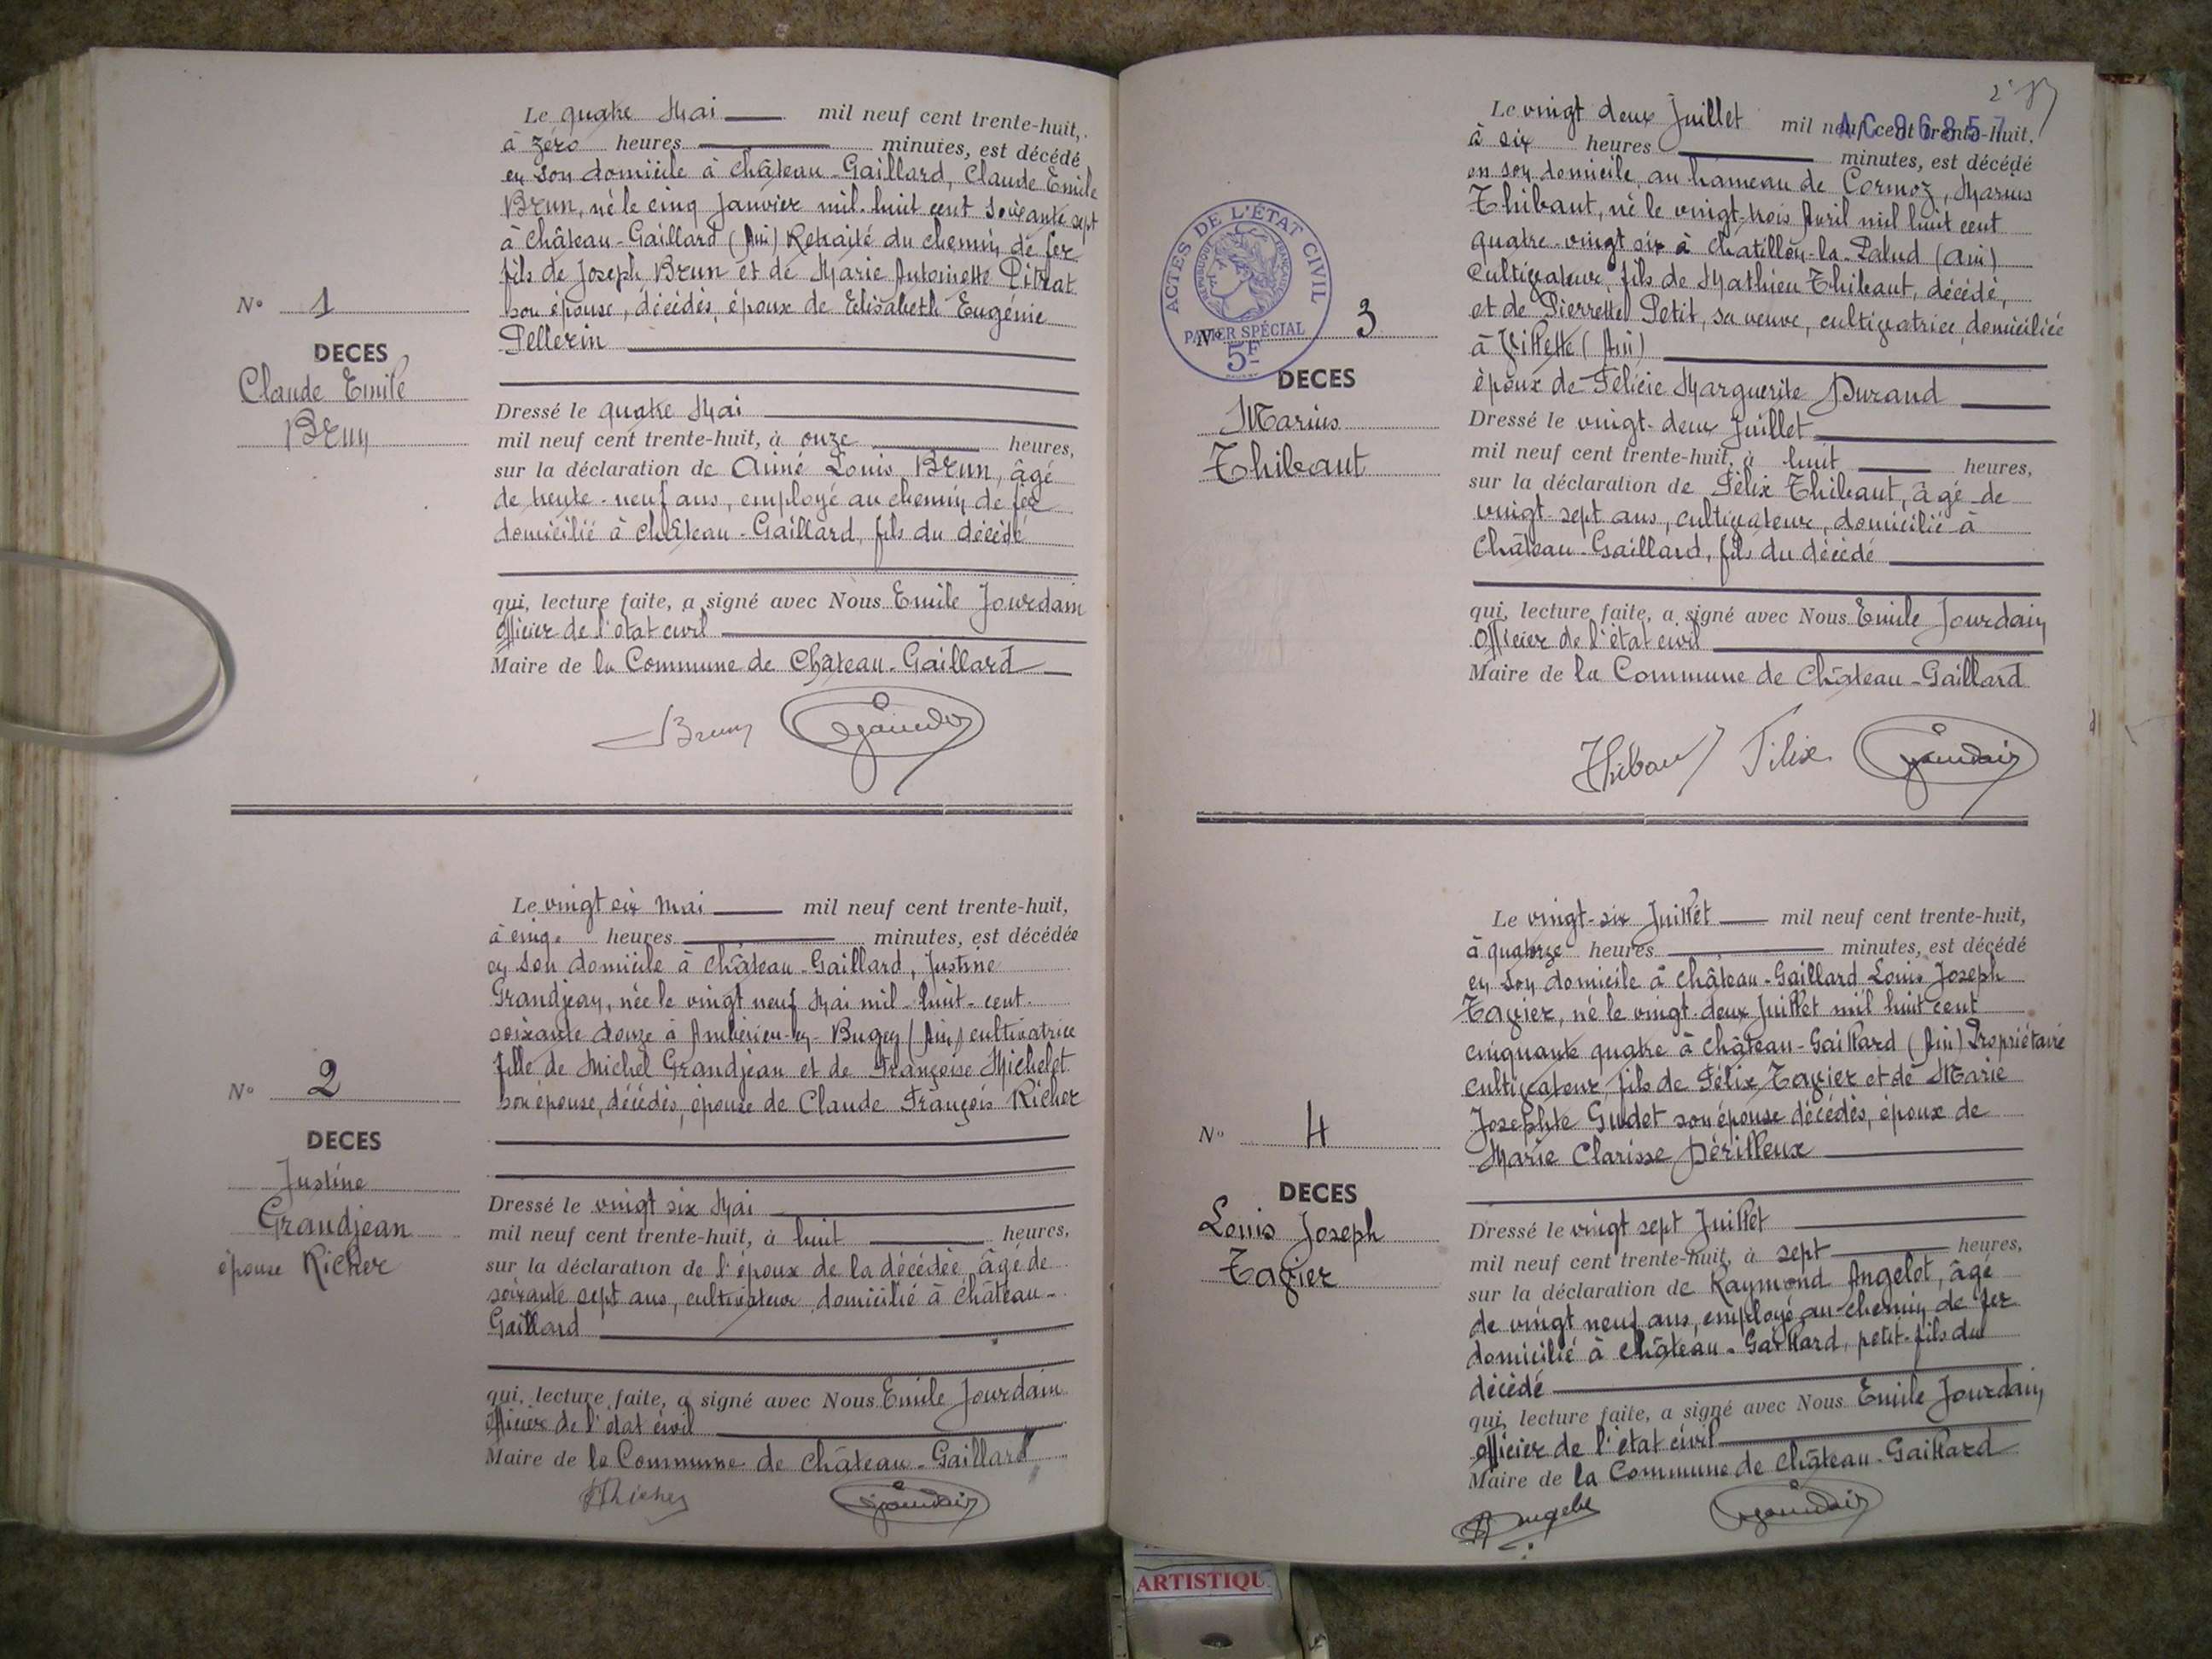 Le quatre Mai mil neuf cent trente-huit,
à zéro heures minutes, est décédé
en son domicile à Château-Gaillard, Claude Emile
Brun, né le cinq Janvier mil-huit cent soixante sept
à Château-Gaillard (Ain) Retraité du chemin de fer
fils de Joseph Brun et de Marie Antoinette Pitrat
son épouse, décédés, époux de Elisabeth Eugénie
Pellerin
N° 1
DECES
Claude Emile
Brun
Dressé le quatre Mai
mil neuf cent trente-huit, à onze heures,
sur la déclaration de Aimé Louis Brun, âgé
de trente-neuf ans, employé au chemin de fer
domicilié à Château-Gaillard, fils du décédé
qui, lecture faite, a signé avec Nous Emile Jourdain
officier de l'état civil
Maire de la Commune de Château-Gaillard
Brun
Le vingt six mai mil neuf cent trente-huit,
à cinq heures minutes, est décédée
en son domicile à Château-Gaillard, Justine
Grandjean, née le vingt neuf Mai mil-huit-cent
soixante douze à Ambérieu-en-Bugey (Ain) cultivatrice
fille de Michel Grandjean et de Françoise Michelet
son épouse, décédés, épouse de Claude François Richer
N° 2
DECES
Justine
Grandjean
épouse Richer
Dressé le vingt six Mai
mil neuf cent trente-huit, à huit heures,
sur la déclaration de l'époux de la décédée, âgé de
soixante sept ans, cultivateur domicilié à Château-
Gaillard
qui, lecture faite, a signé avec Nous Emile Jourdain
officier de l'état civil
Maire de la Commune de Château-Gaillard
Le vingt deux Juillet mil neuf cent trente-huit,
AC 86857
à six heures minutes, est décédé
en son domicile, au hameau de Cormoz, Marius
Thibaut, né le vingt-trois Avril mil huit cent
quatre-vingt six à Chatillon-la-Palud (Ain)
cultivateur, fils de Mathieu Thibaut, décédé,
et de Pierrette Petit, sa veuve, cultivatrice domiciliée
à Villette (Ain)
époux de Félicie Marguerite Durand
ACTES DE L'ÉTAT CIVIL
RÉPUBLIQUE FRANÇAISE
PAPIER SPÉCIAL
5F
N° 3
DECES
Marius
Thibaut
Dressé le vingt-deux Juillet
mil neuf cent trente-huit, à huit heures,
sur la déclaration de Félix Thibaut, âgé de
vingt-sept ans, cultivateur, domicilié à
Château-Gaillard, fils du décédé
qui, lecture faite, a signé avec Nous Emile Jourdain
Officier de l'état civil
Maire de la Commune de Château-Gaillard
Thibaut Félix
Le vingt-six Juillet mil neuf cent trente-huit,
à quatorze heures minutes, est décédé
en son domicile à Château-Gaillard Louis Joseph
Tavier, né le vingt-deux Juillet mil huit cent
cinquante quatre à Château-Gaillard (Ain) Propriétaire
cultivateur, fils de Félix Tavier et de Marie
Josephte Gudet son épouse décédés, époux de
Marie Clarisse Dérilleux
N° 4
DECES
Louis Joseph
Tavier
Dressé le vingt sept Juillet
mil neuf cent trente-huit, à sept heures,
sur la déclaration de Raymond Angelot, âgé
de vingt neuf ans, employé au chemin de fer
domicilié à Château-Gaillard, petit-fils du
décédé
qui, lecture faite, a signé avec Nous Emile Jourdain
officier de l'état civil
Maire de la Commune de Château-Gaillard
ARTISTIQU